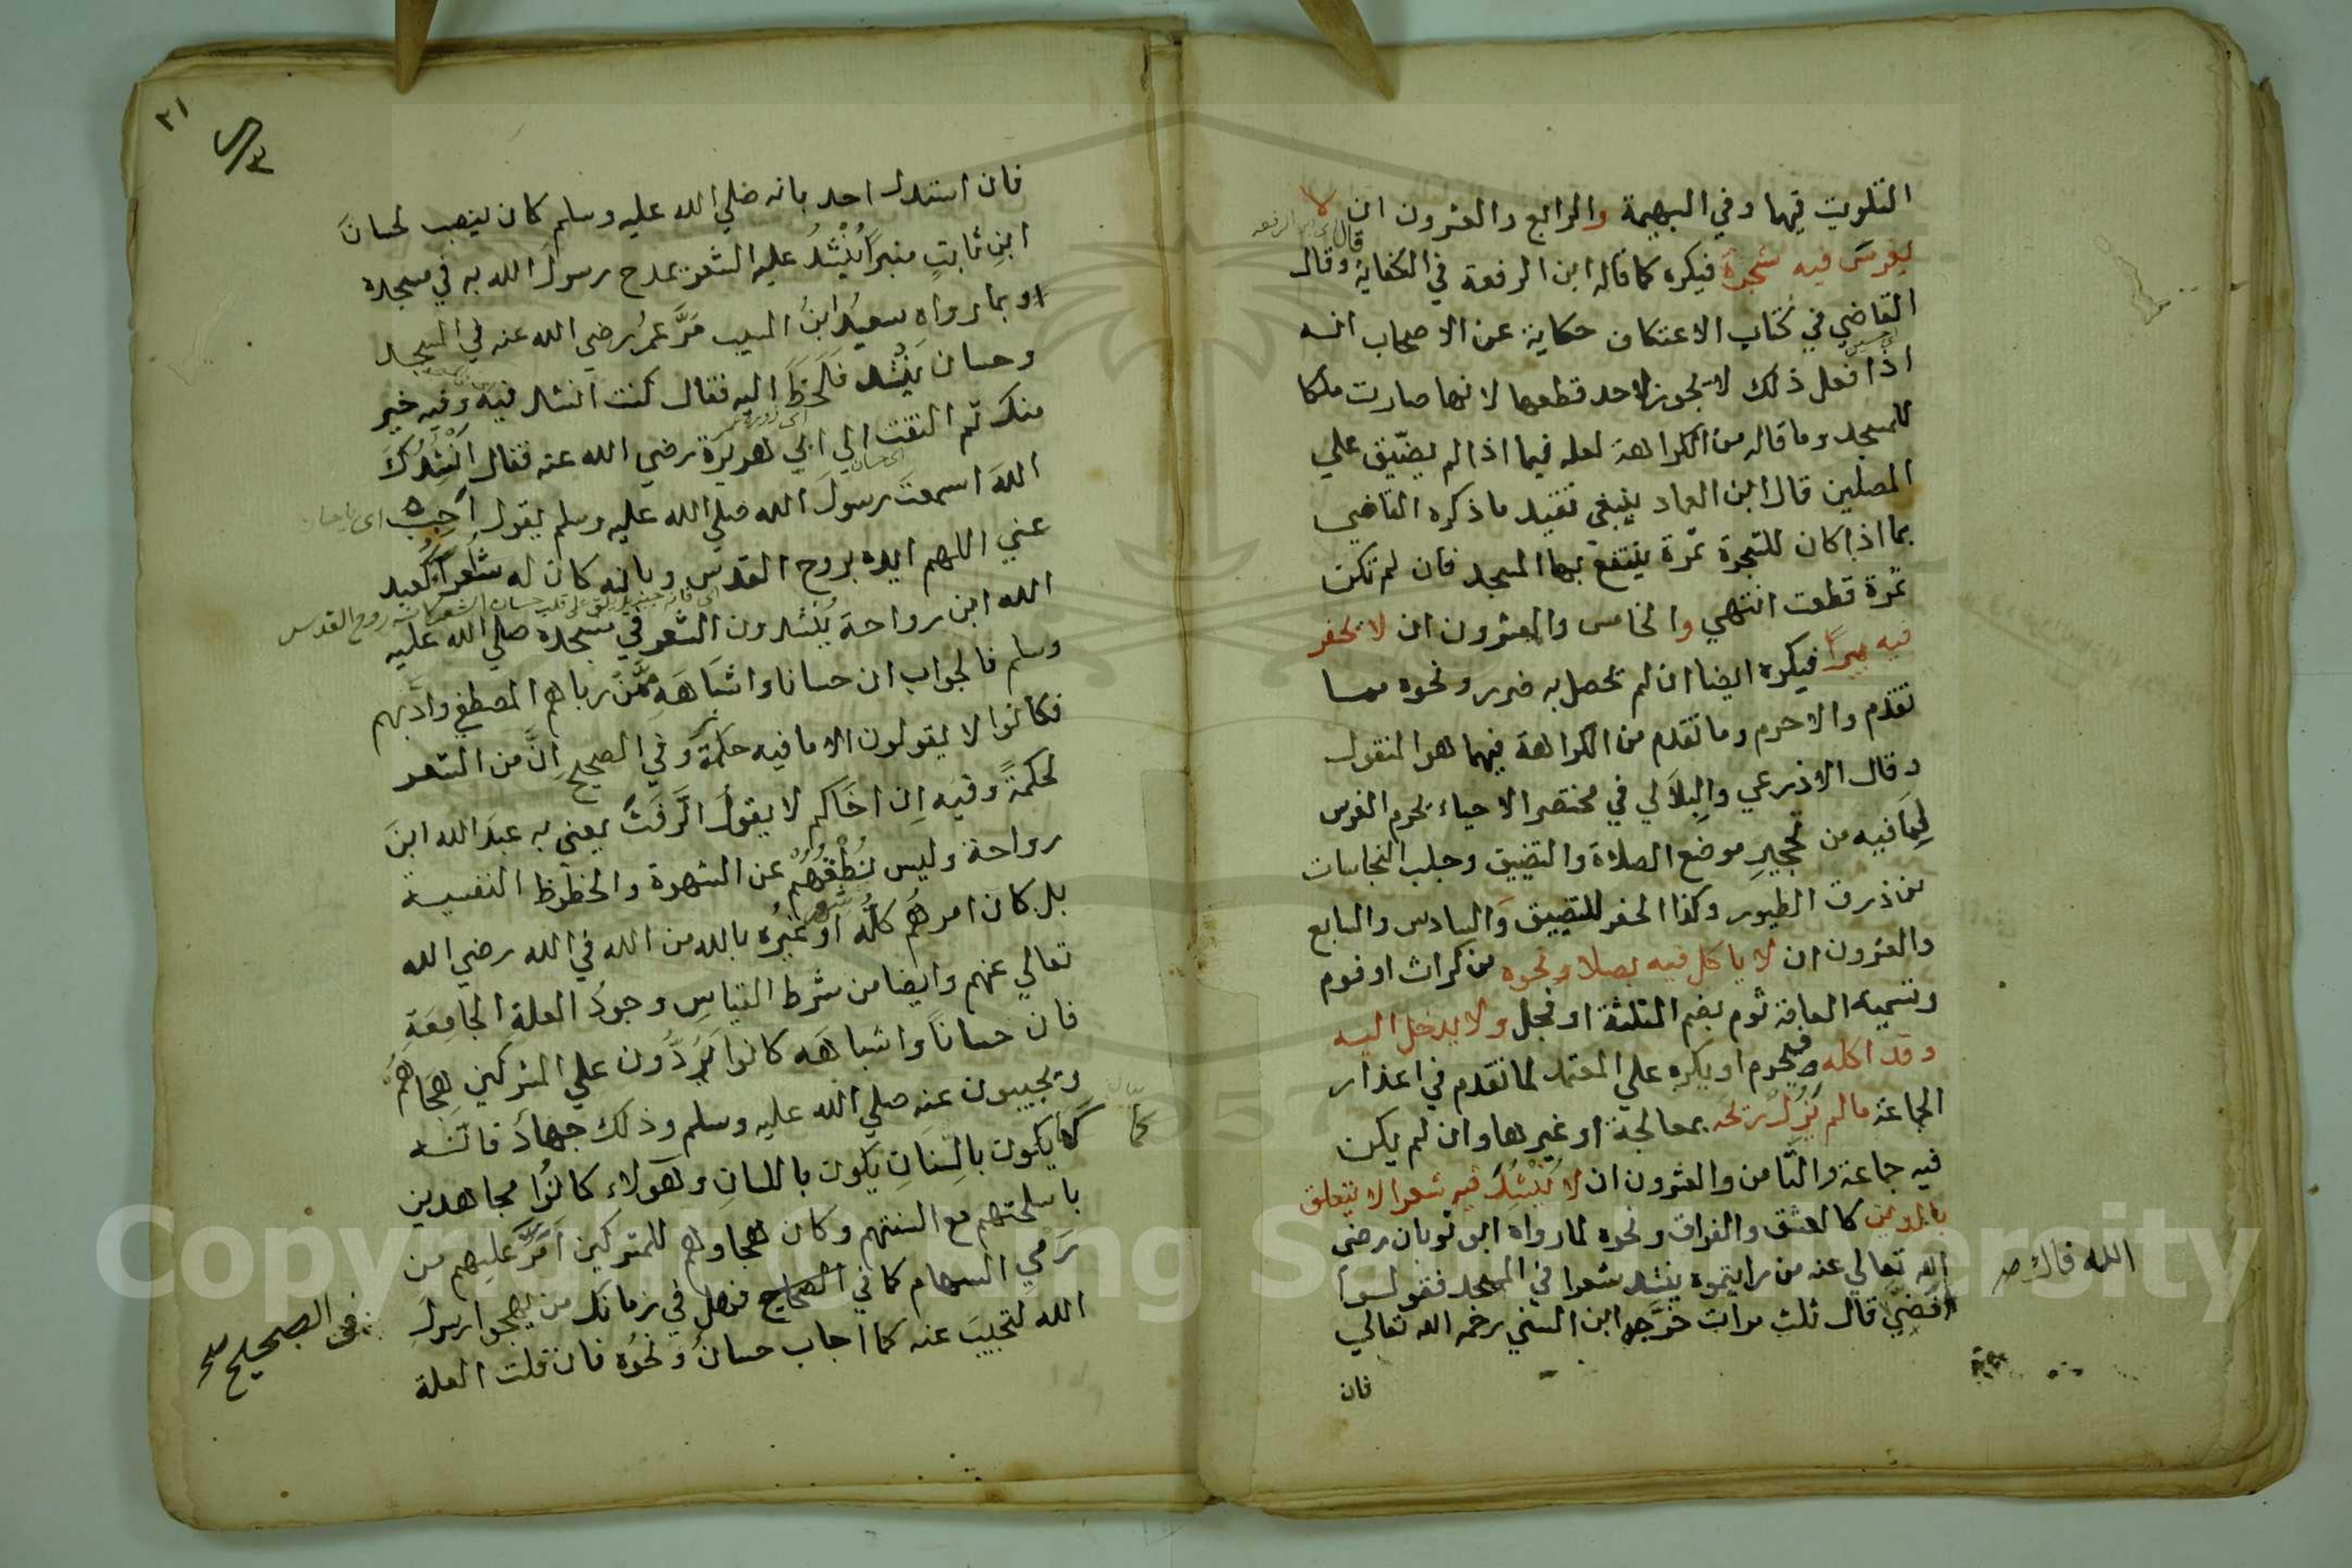 التلويث فيها وفي البهيمة والرابع والعشرون ان لا
يغرس فيه شجرة فيكره كما قاله ابن الرفعة في الكفاية وقال
القاضي في كتاب الاعتكاف حكاية عن الاصحاب انه
اذا فعل ذلك لا يجوز لاحد قطعها لانها صارت ملكا
للمسجد وما قاله من الكراهة لعله فيما اذا لم يضيّق علي
المصلين قال ابن العماد ينبغي تقييد ما ذكره القاضي
بما اذا كان للشجرة ثمرة ينتفع بها المسجد فان لم تكن
ثمرة قطعت انتهي والخامس والعشرون ان لا يحفر
فيه بيرًا فيكره ايضا ان لم يحصل به ضرر ونحوه مما
تقدم والا حرم وما تقدم من الكراهة فيهما هو المنقول
وقال الاذرعي والبِلَالي في مختصر الاحياء يحرم الغرس
لِمَا فيه من تحجيرِ موضع الصلاة والتضييق وجلب النجاسات
من ذرق الطيور وكذا الحفر للتضييق والسادس والسابع
والعشرون ان لا ياكل فيه بصلا ونحوه من كراث او فوم
وتسميه العامة ثوم بضم المثلثة او فجل ولا يدخل اليه
وقد اكله فيحرم او يكره علي المعتمد لما تقدم في اعذار
الجماعة ما لم يَزُلْ ريحه بمعالجة او غيرها وان لم يكن
فيه جماعة والثامن والعشرون ان لا يُنْشِدَ فيه شعرا لا يتعلق
بالدين كالعشق والفراق ونحوه لما رواه ابو ثوبان رضي
الله تعالي عنه من رايتموه ينشد شعرا في المسجد فقولوا
الله فاك صح
افضي قال ثلث مرات خرَّجه ابن السني رحمه الله تعالي
فان
٢١
فان استدل احد بانه صلي الله عليه وسلم كان ينصب لحسانَ
ابنِ ثابتٍ منبرًا يُنْشِدُ عليه الشعر يمدح رسولَ الله به في مسجده
او بما رواه سعيدُ ابنُ المسيب مَرَّ عمرُ رضي الله عنه في المسجد
وحسان يَنْشُد فَلَحَظَ اليه فقال كنت انشد فيه وفيه خير
منك ثم التفت الي ابي هريرة رضي الله عنه فقال اَنْشُدُكَ
اللهَ اسمعتَ رسولَ الله صلي الله عليه وسلم يقول اَجِبْ
عني اللهم ايده بروح القدس وبانه كان له شعراء كعبد
الله ابن رواحة يُنشدون الشعر في مسجده صلي الله عليه
وسلم فالجواب ان حسانا واشباهَهِ ممَّن رباهم المصطفي وادَّبهم
فكانوا لا يقولون الا ما فيه حكمة وفي الصحيح اِنَّ من الشعر
لحكمةً وفيه اِن اخَاكم لا يقولُ الرَّفَثَ يعني به عبدَ الله ابنَ
رواحة وليس نُطْقُهم عن الشهوة والحظوظ النفسية
بل كان امرهُم كلُّه او غيرُه بالله من الله في الله رضي الله
تعالي عنهم وايضا من شرط القياسِ وجودُ العلةِ الجامعَةِ
فان حسانًا واشباهَه كانوا يَرُدُّون علي المشركين هِجَاهُم
ويجيبون عنه صلي الله عليه وسلم وذلك جهادٌ فانه
كما يكون بالسنانِ يكون باللسانِ وهَؤلاء كانوا مجاهدين
باسلحتهم مع السنتهم وكان هجاوهم للمشركين اَمَرَّ عليهم من
رَمي السهام كما في الصحاح فهل في زمانك من يهجوا رسولَ
في الصحيح صح
الله لتجيبَ عنه كما اجاب حسانُ ونحوُه فان قلت العلة